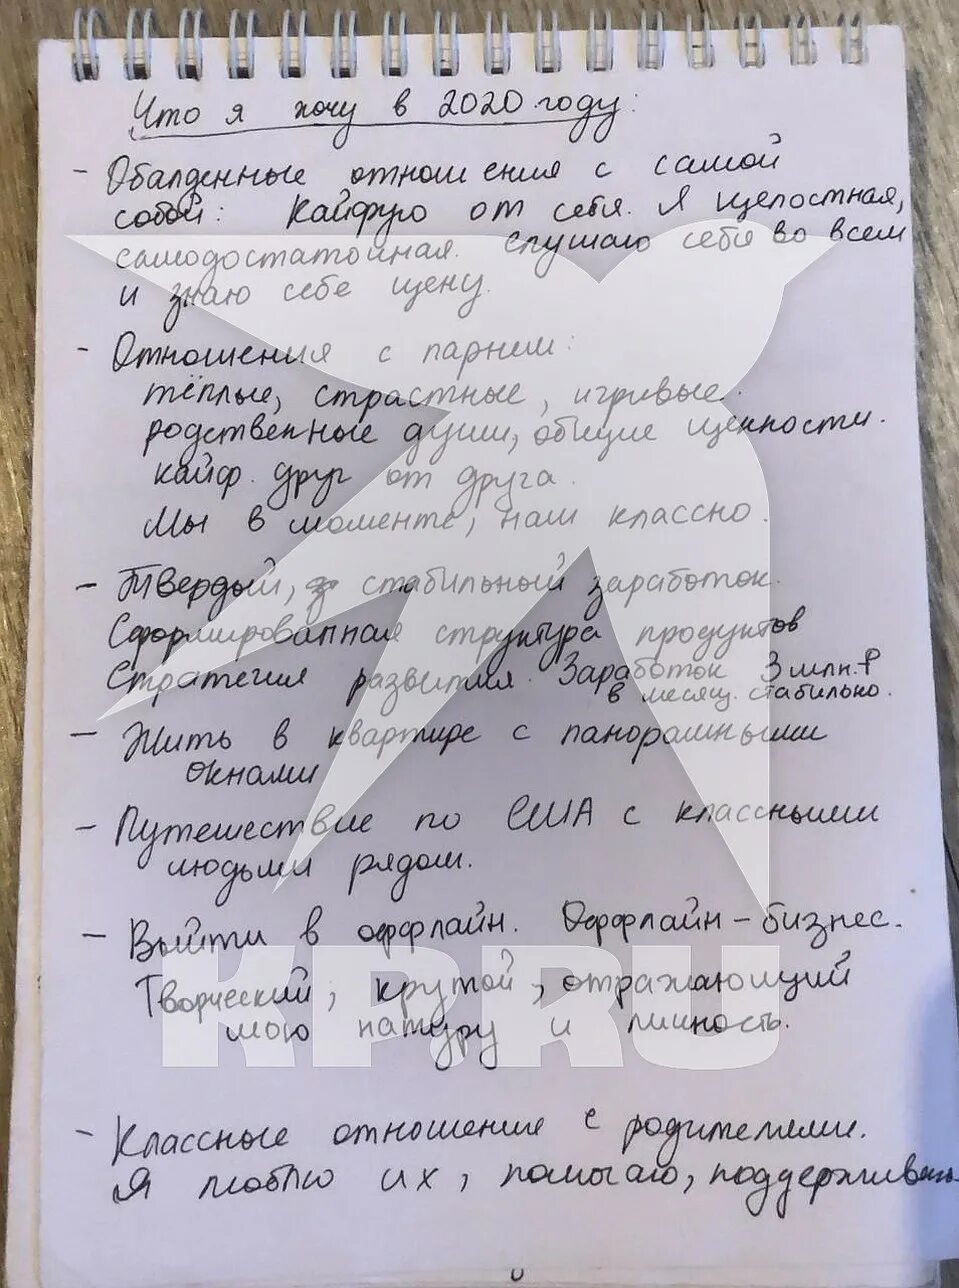 Что я хочу в 2020 году:
- Обалденные отношения с самой
собой: Кайфую от себя. Я целостная,
самодостаточная. Слушаю себя во всем
и знаю себе цену.
- Отношения с парнем:
тёплые, страстные, игривые.
родственные души, общие ценности.
кайф друг от друга.
Мы в моменте, нам классно.
- Твердый, стабильный заработок.
Сформированная структура продуктов
Стратегия развития. Заработок 3 млн. ₽
в месяц. стабильно.
- Жить в квартире с панорамными
окнами
- Путешествие по США с классными
людьми рядом.
- Выйти в оффлайн. Оффлайн-бизнес.
Творческий, крутой, отражающий
мою натуру и личность.
KP.RU
- Классные отношения с родителями.
Я люблю их, помогаю, поддерживаю